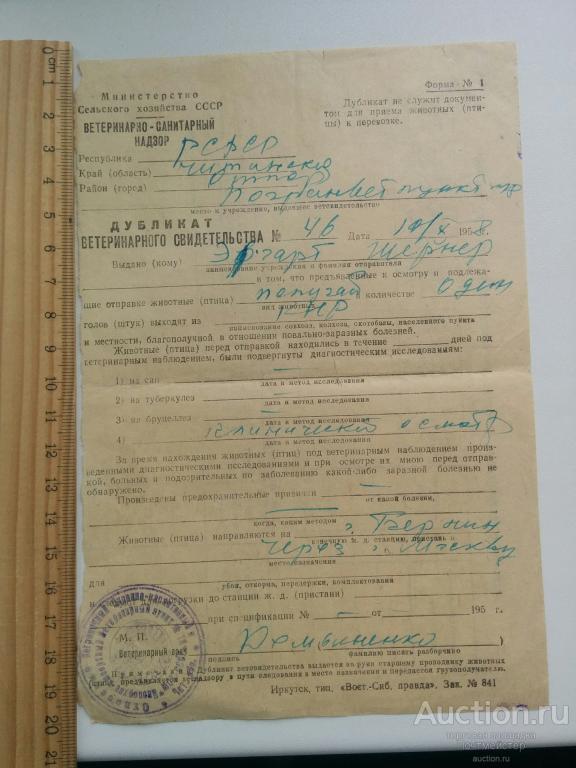 Министерство
Сельского хозяйства СССР
ВЕТЕРИНАРНО-САНИТАРНЫЙ
НАДЗОР
Форма № 1
Дубликат не служит докумен-
том для приема животных (пти-
цы) к перевозке.
Республика РСФСР
Край (область) Читинская
Район (город) Погранветпункт
место и учреждение, выдавшее ветсвидетельство
ДУБЛИКАТ
ВЕТЕРИНАРНОГО СВИДЕТЕЛЬСТВА № 46 Дата 19/X 1958
Выдано (кому) Шернер
наименование учреждения и фамилия отправителя
в том, что предъявленные к осмотру и подлежа-
щие отправке животные (птица) попугай количестве Один
вид животных
голов (штук) выходят из КНР
наименование совхоза, колхоза, скотобазы, населенного пункта
и местности, благополучной в отношении повально-заразных болезней.
Животные (птица) перед отправкой находились в течение дней под
ветеринарным наблюдением, были подвергнуты диагностическим исследованиям:
1) на сап —
дата и метод исследования
2) на туберкулез —
дата и метод исследования
3) на бруцеллез —
дата и метод исследования
4) клинически осмотр
дата и метод исследования
За время нахождения животных (птиц) под ветеринарным наблюдением произ-
веденными диагностическими исследованиями и при осмотре их мною перед отправ-
кой, больных и подозрительных по заболеванию какой-либо заразной болезнью не
обнаружено.
Произведены предохранительные прививки —
от какой болезни,
когда, каким методом
Животные (птица) направляются на г. Берлин
конечную ж. д. станцию, пристань
через г. Москву
место назначения
для
убоя, откорма, передержки, комплектования
погрузки до станции ж. д. (пристани)
при спецификации № — от 195 г.
М. П.
Ветеринарный врач
подпись
фамилию писать разборчиво
Примечание. Дубликат ветсвидетельства выдается на руки старшему проводнику животных
(птиц), предъявляется ветнадзору в пути следования и в месте назначения и передается грузополучателю.
Иркутск, тип. «Вост.-Сиб. правда». Зак. № 841
0 cm 1 2 3 4 5 6 7 8 9 10 11 12 13 14 15 16 17 18 19 20 21
Auction.ru
торговая площадка
auction.ru